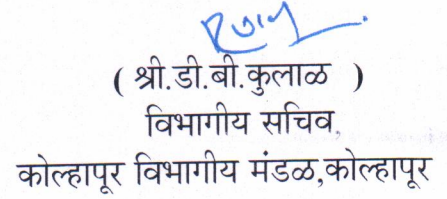 ( श्री.डी.बी.कुलाळ )
विभागीय सचिव,
कोल्हापूर विभागीय मंडळ,कोल्हापूर